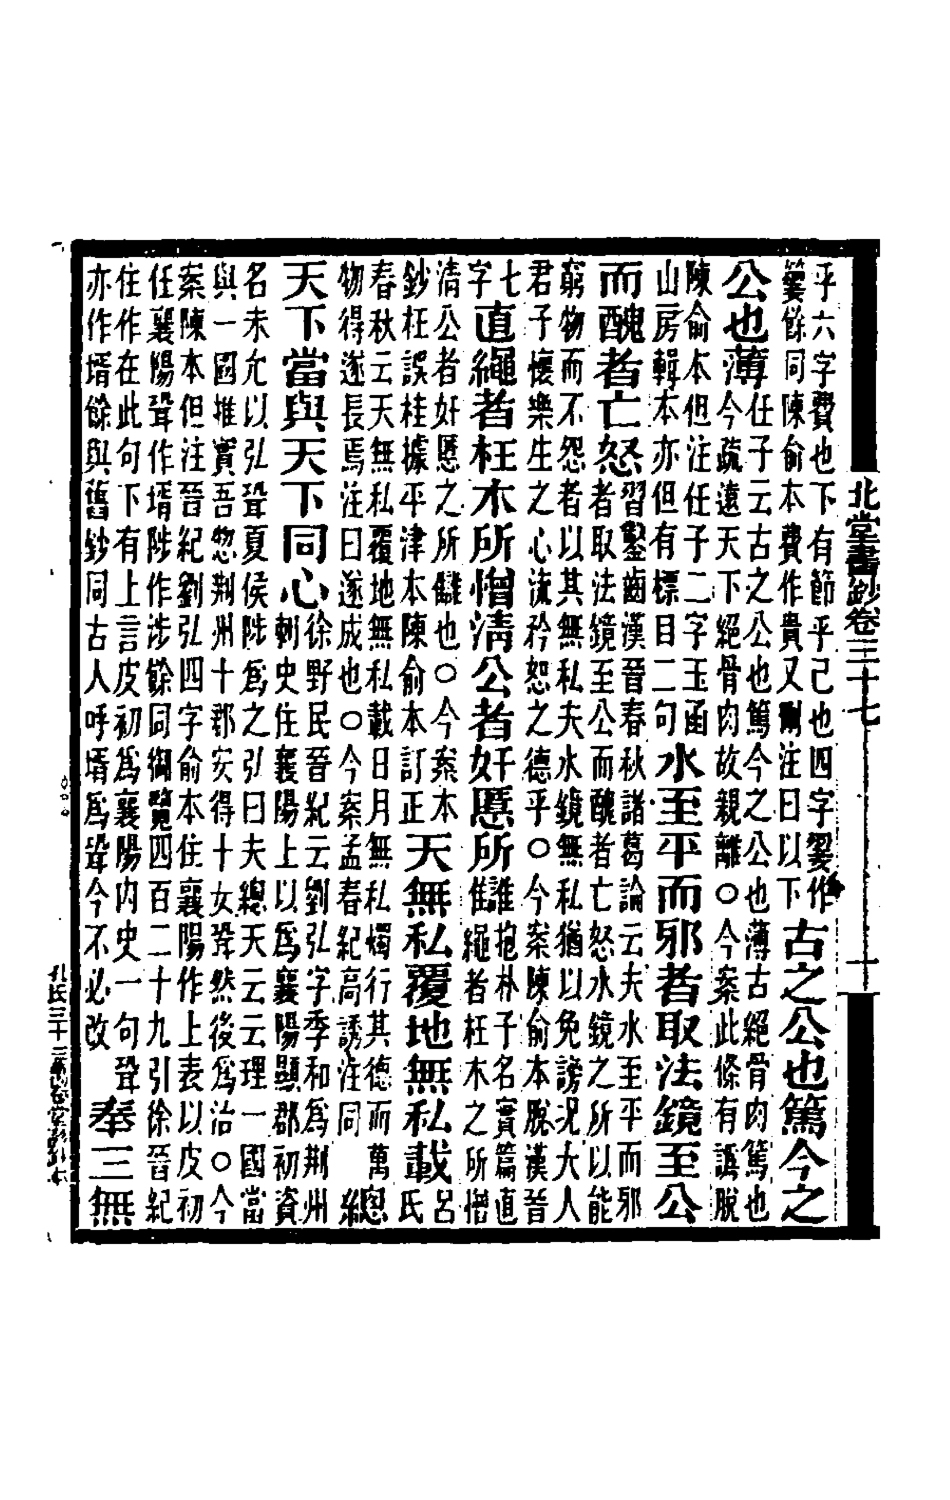 北堂書鈔卷三十七
乎六字費也下有節乎己也四字寠作
寠餘同陳俞本費作貴又刪注曰以下
古之公也篤今之
公也薄
任子云古之公也篤今之公也薄古絕骨肉篤也
今疏遠天下絕骨肉故親離〇今案此條有譌脫
陳俞本但注任子二字玉函
山房輯本亦但有標目二句
水至平而邪者取法鏡至公
而醜者亡怒
習鑿齒漢晉春秋諸葛論云夫水至平而邪
者取法鏡至公而醜者亡怒水鏡之所以能
窮物而不怨者以其無私夫水鏡無私猶以免謗況大人
君子懷樂生之心流矜恕之德乎〇今案陳俞本脫漢晉
七
字
直繩者枉木所憎清公者奸慝所讎
抱朴子名實篇直
繩者枉木之所憎
清公者奸慝之所讎也〇今案本
鈔枉誤桂據平津本陳俞本訂正
天無私覆地無私載
呂
氏
春秋云天無私覆地無私載日月無私燭行其德而萬
物得遂長焉注曰遂成也〇今案孟春紀高誘注同
總
天下當與天下同心
徐野民晉紀云劉弘字季和為荆州
刺史住襄陽上以為襄陽顯郡初資
名未允以弘聟夏侯陟為之弘曰夫總天云云理一國當
與一國推實吾惣荆州十郡安得十女聟然後為治〇今
案陳本但注晉紀劉弘四字俞本住襄陽作上表以皮初
任襄陽聟作壻陟作涉餘同御覽四百二十九引徐晉紀
住作在此句下有上言皮初為襄陽內史一句聟
亦作壻餘與舊鈔同古人呼壻為聟今不必改
奉三無
孔氏三十三萬卷堂影鈔本